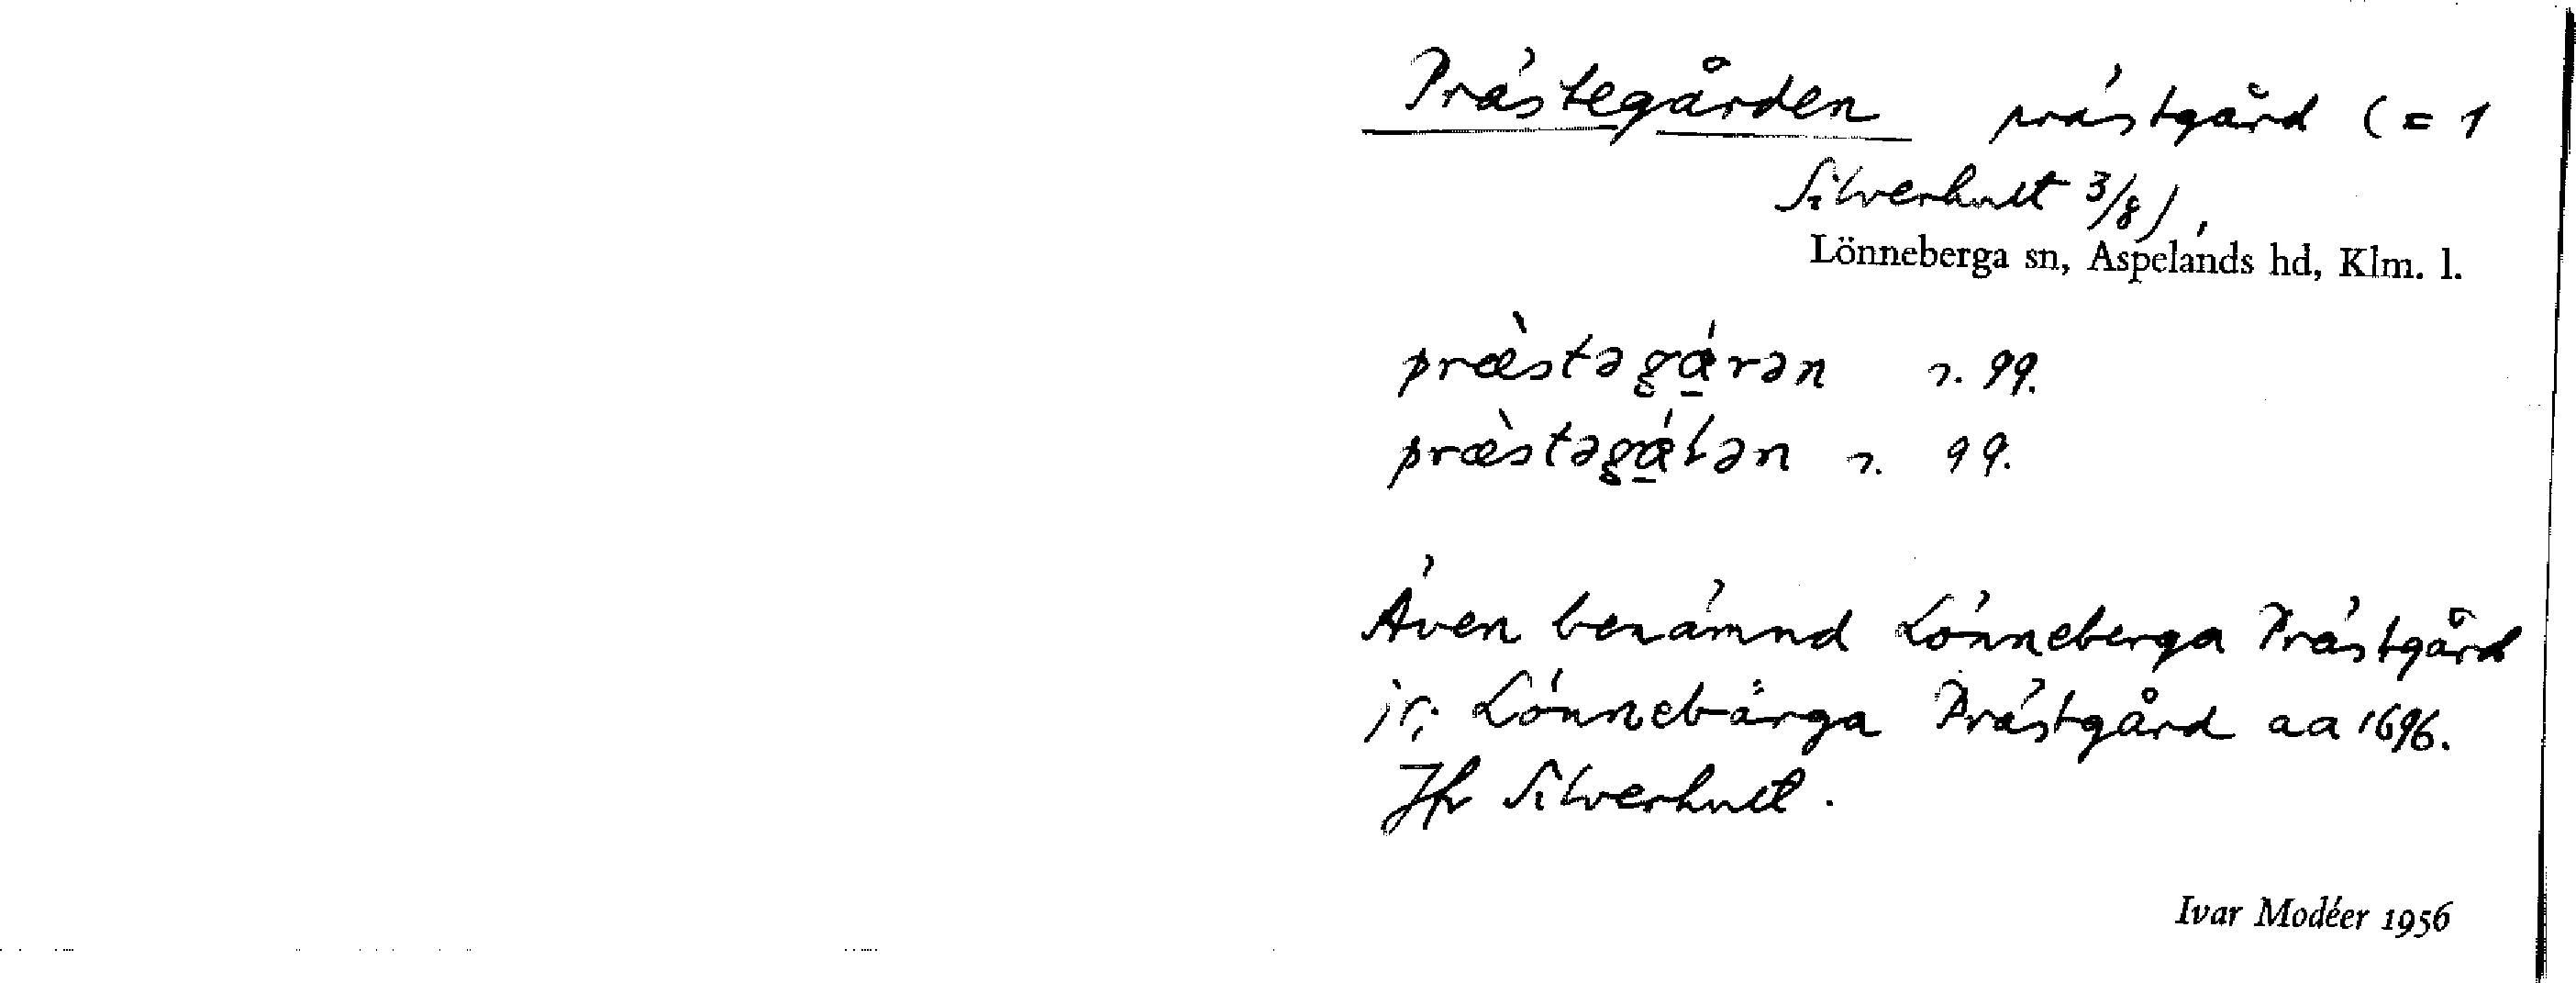 Prästegården prästgård (= 1
Silverhult 3/8),
Lönneberga sn, Aspelands hd, Klm. l.
præ̀stəgá̱rən r. 99.
præ̀stəgá̱lən r. 99.
Även benämnd Lönneberga Prästgård
jr; Lönnebärga Prästgård aa 1696.
Jfr Silverhult.
Ivar Modéer 1956